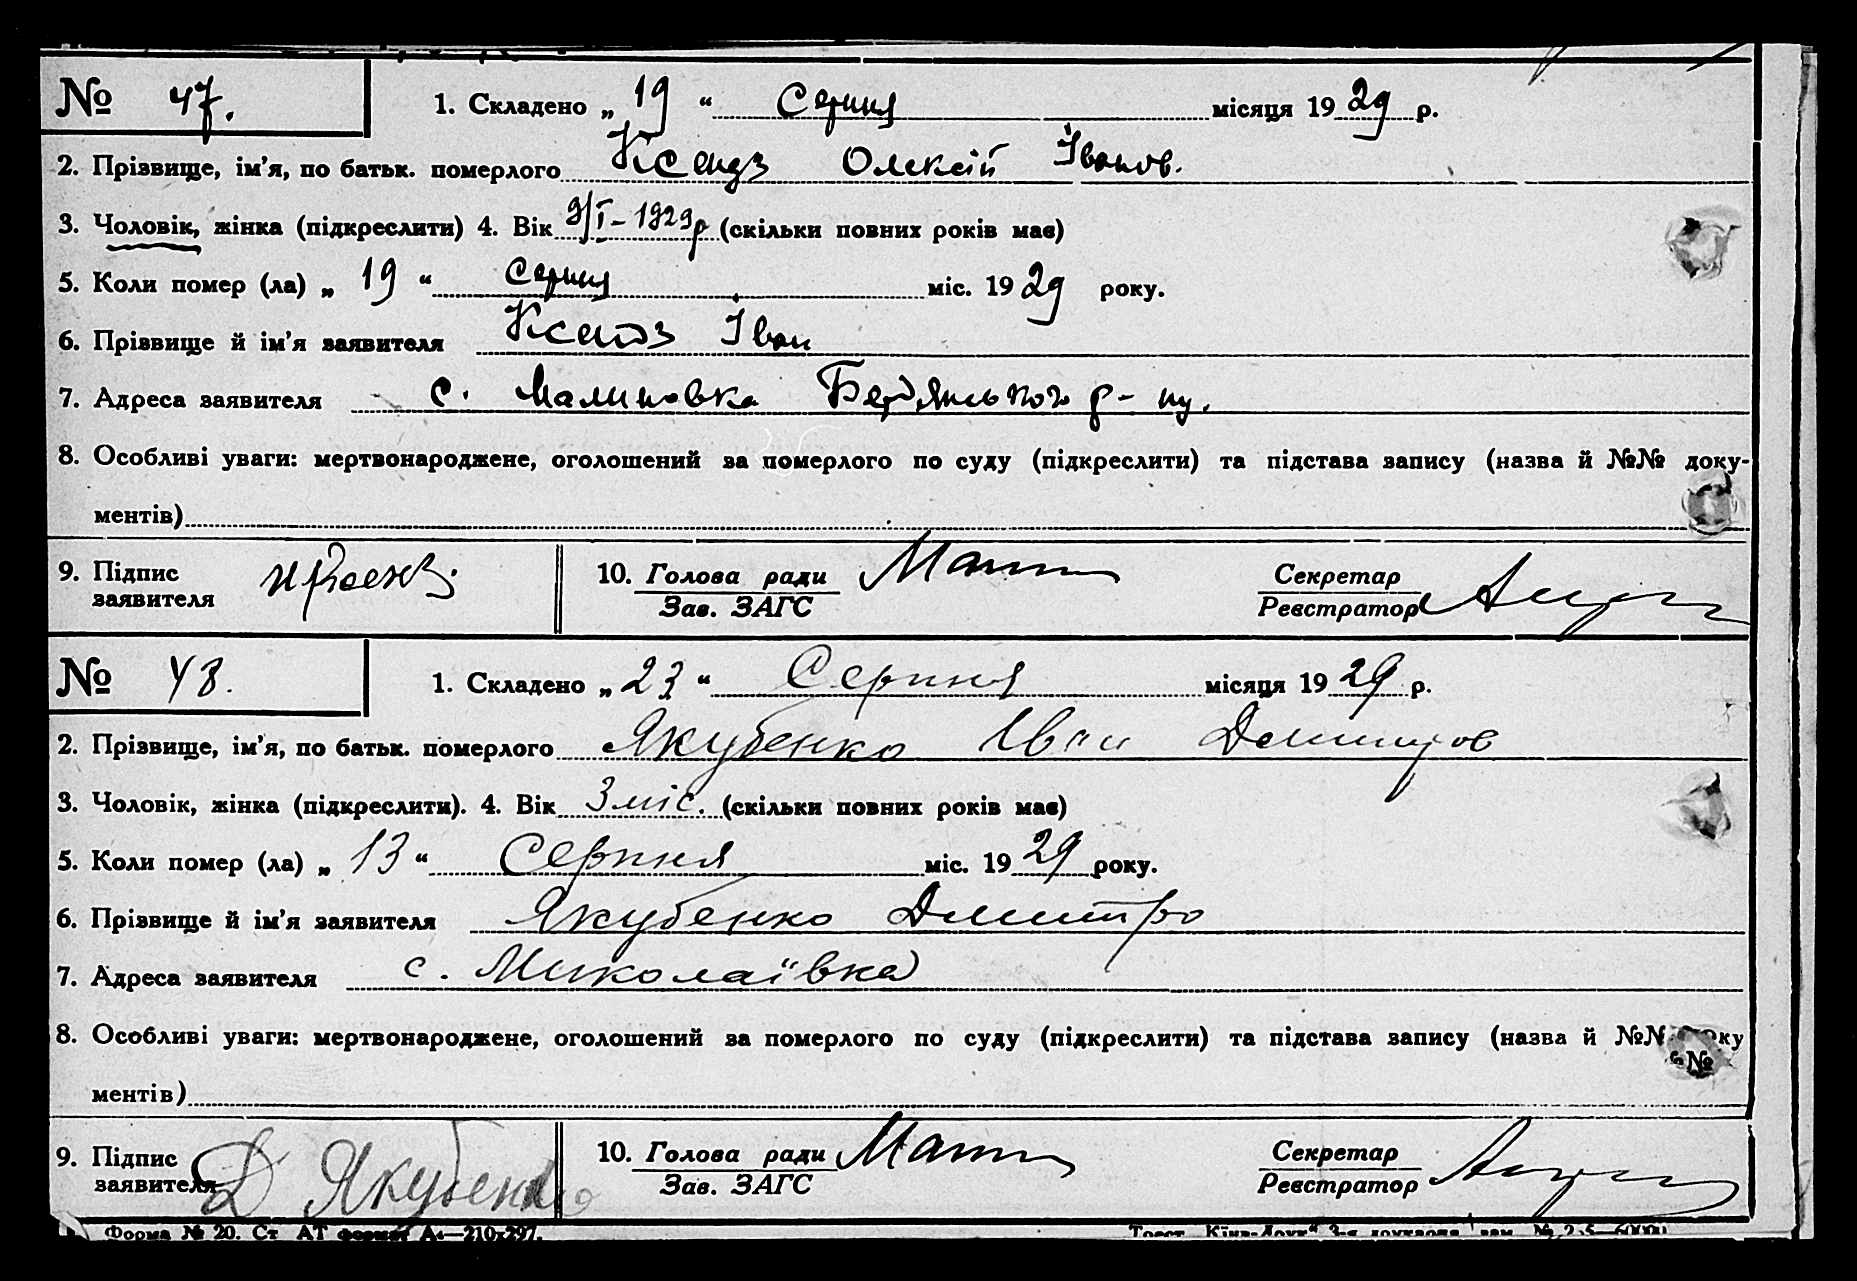 № 47. 1. Складено „ 19 “ Серпня місяця 1929 р.
2. Прізвище, ім’я, по батьк. померлого Ксендз Олексій Іванов.
3. Чоловік, жінка (підкреслити) 4. Вік 9/I - 1929р (скільки повних років має)
5. Коли помер (ла) „ 19 “ серпня міс. 1929 року.
6. Прізвище й ім’я заявителя Ксендз Іван
7. Адреса заявителя с. Малиновка Бердянського р-ну.
8. Особливі уваги: мертвонароджене, оголошений за померлого по суду (підкреслити) та підстава запису (назва й №№ доку-
ментів)
9. Підпис заявителя
10. Голова ради
Зав. ЗАГС
Секретар
Реєстратор
№ 48. 1. Складено „ 23 “ Серпня місяця 1929 р.
2. Прізвище, ім’я, по батьк. померлого Якубенко Іван Дмитров
3. Чоловік, жінка (підкреслити). 4. Вік 3 міс. (скільки повних років має)
5. Коли помер (ла) „ 13 “ Серпня міс. 1929 року.
6. Прізвище й ім’я заявителя Якубенко Дмитро
7. Адреса заявителя с. Миколаївка
8. Особливі уваги: мертвонароджене, оголошений за померлого по суду (підкреслити) та підстава запису (назва й
ментів)
9. Підпис заявителя Д Якубенко
10. Голова ради
Зав. ЗАГС
Секретар
Реєстратор
Форма № 20. Ст АТ формат А4—210x297.